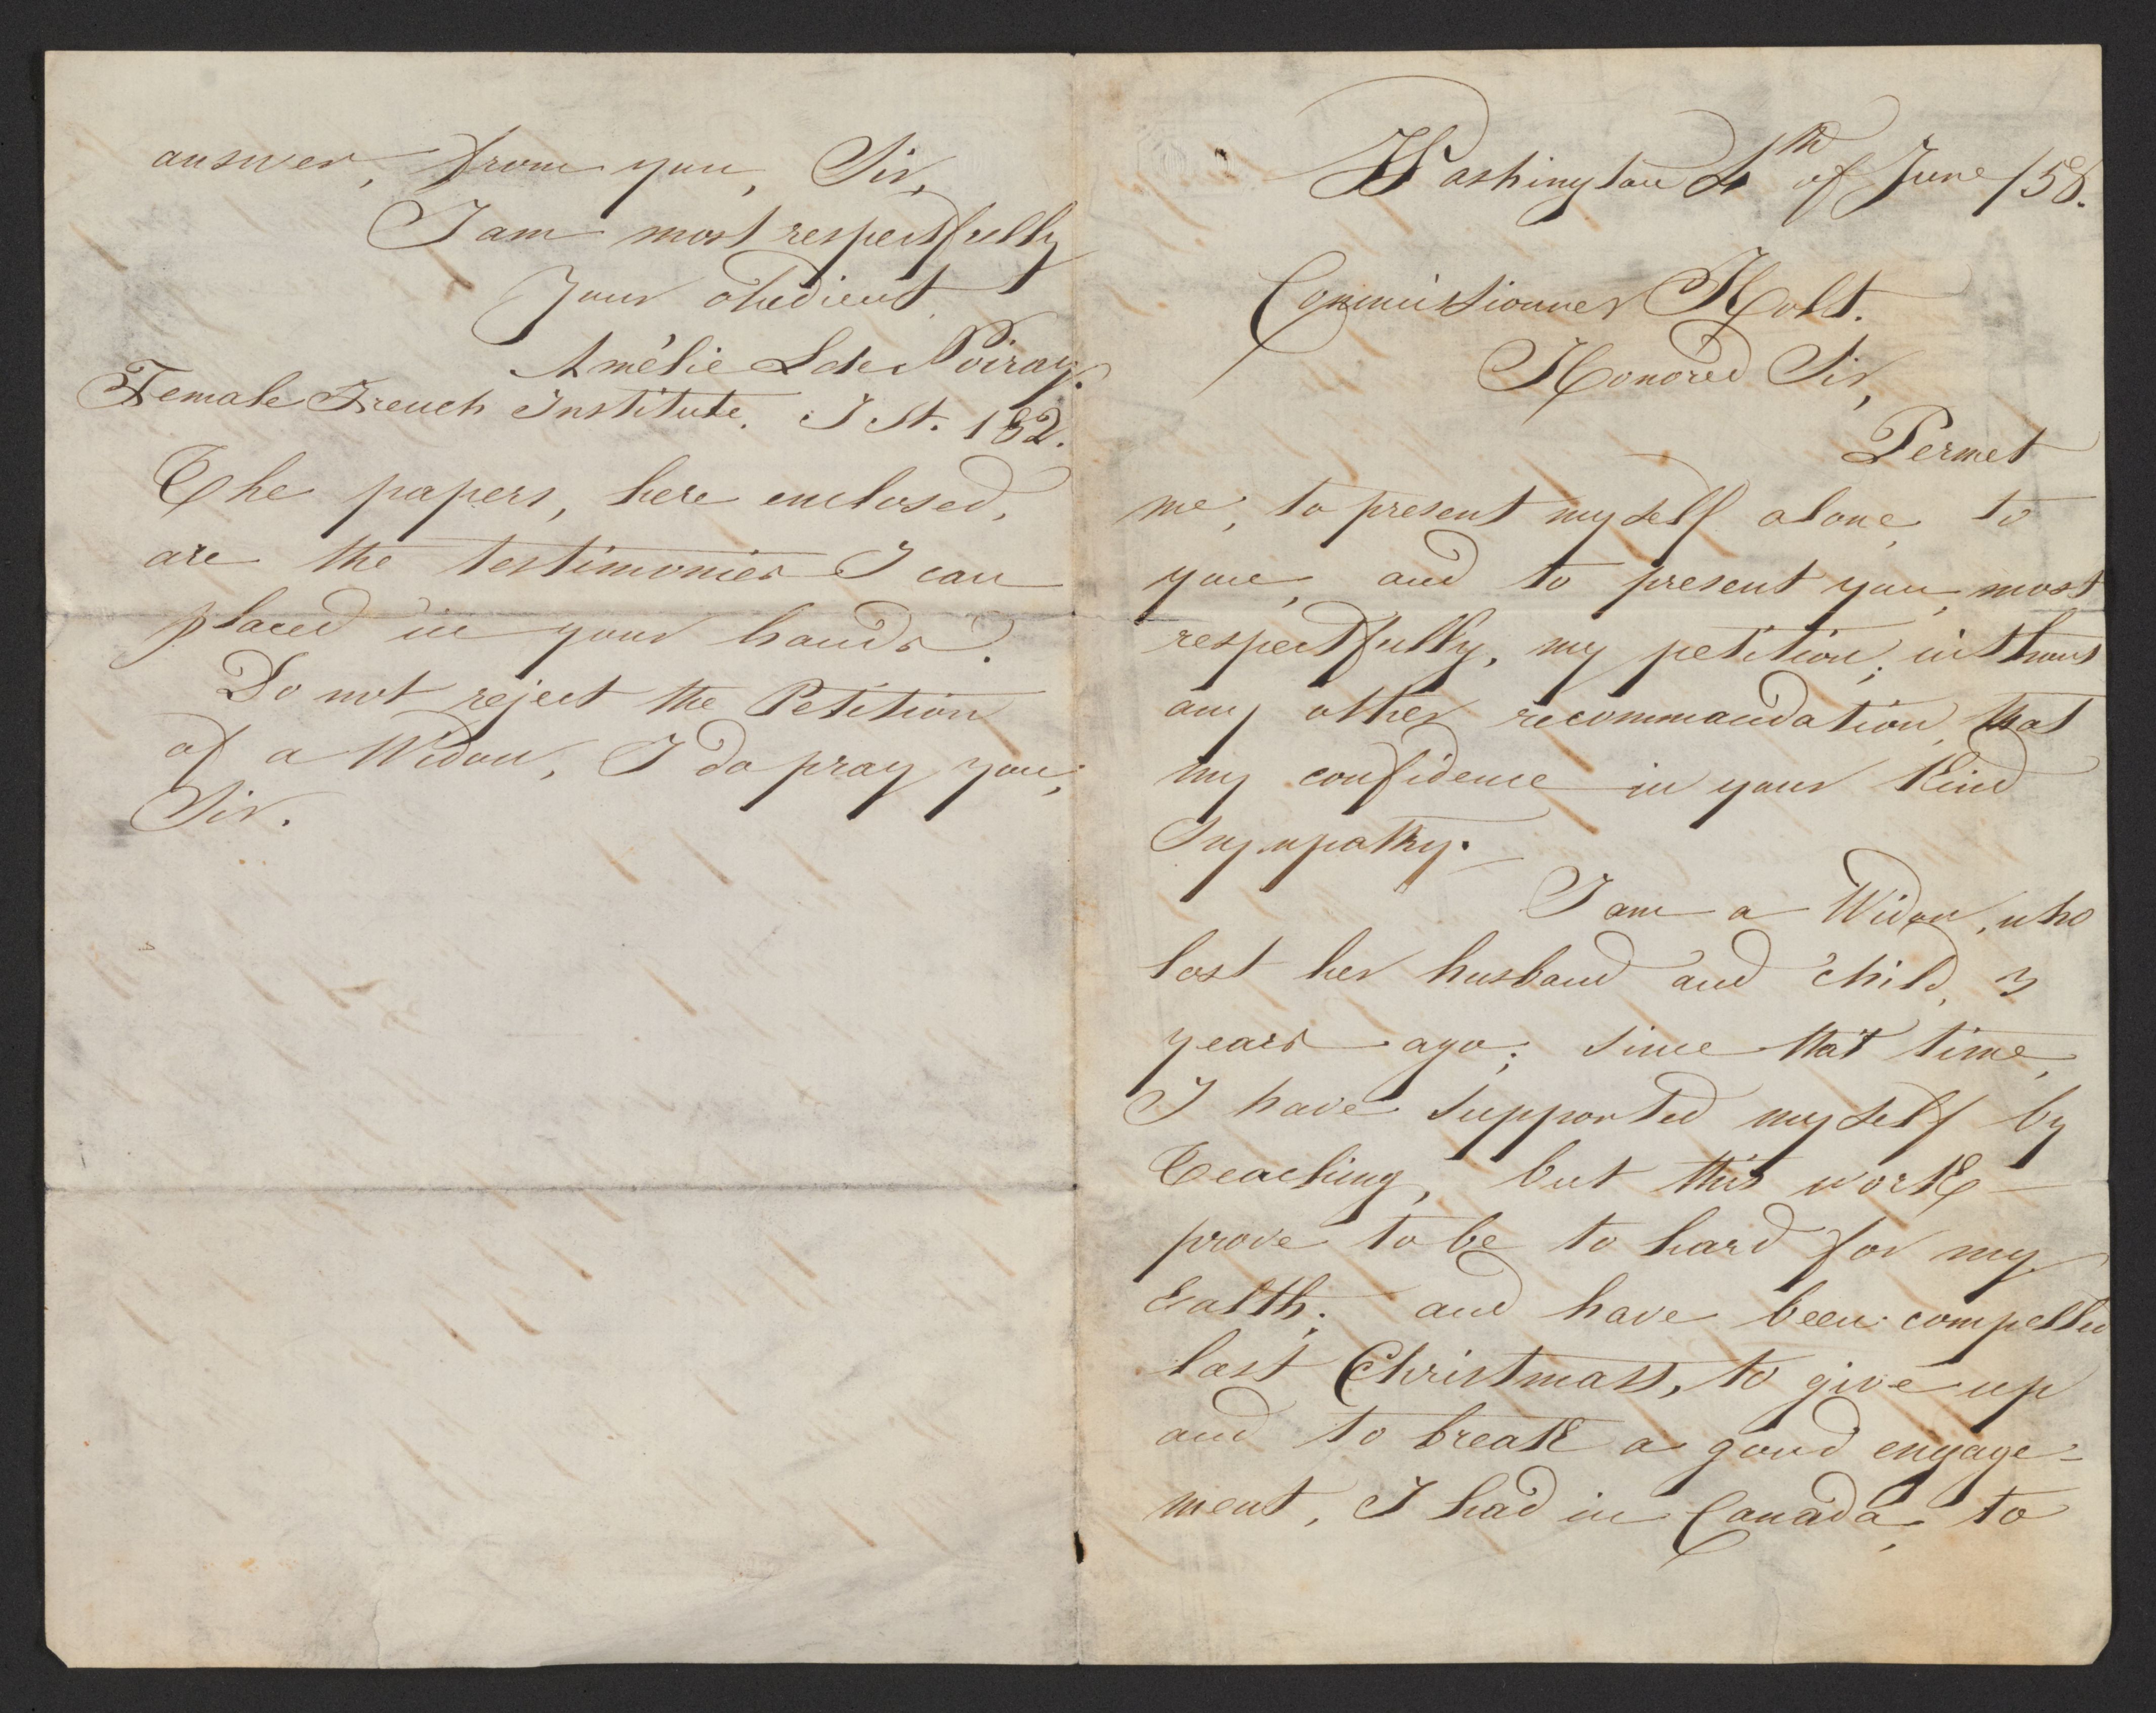 Washington 4th of June /58.
Commissionner Holt.
Honored Sir,
Permet
me, to present myself alone, to
you, and to present you, most
respectfully, my petition; without
any other recommandation, that
my confidence in your kind
Sympathy.
I am a Widow, who
lost her husband and child, 3
years ago; since that time,
I have supported myself by
Teaching, but this work
prove to be to hard for my
Ealth; and have been compelled
last Christmass, to give up
and to break a good engage-
ment, I had in Canada, to
answer, from you, Sir,
I am most respectfully
Your obedient
Amélie L de Poiray.
Female French Institute. I St. 182.
The papers, here enclosed,
are the testimonies I can
placed in your hands.
Do not reject the Petition
of a Widow, I do pray you,
Sir.